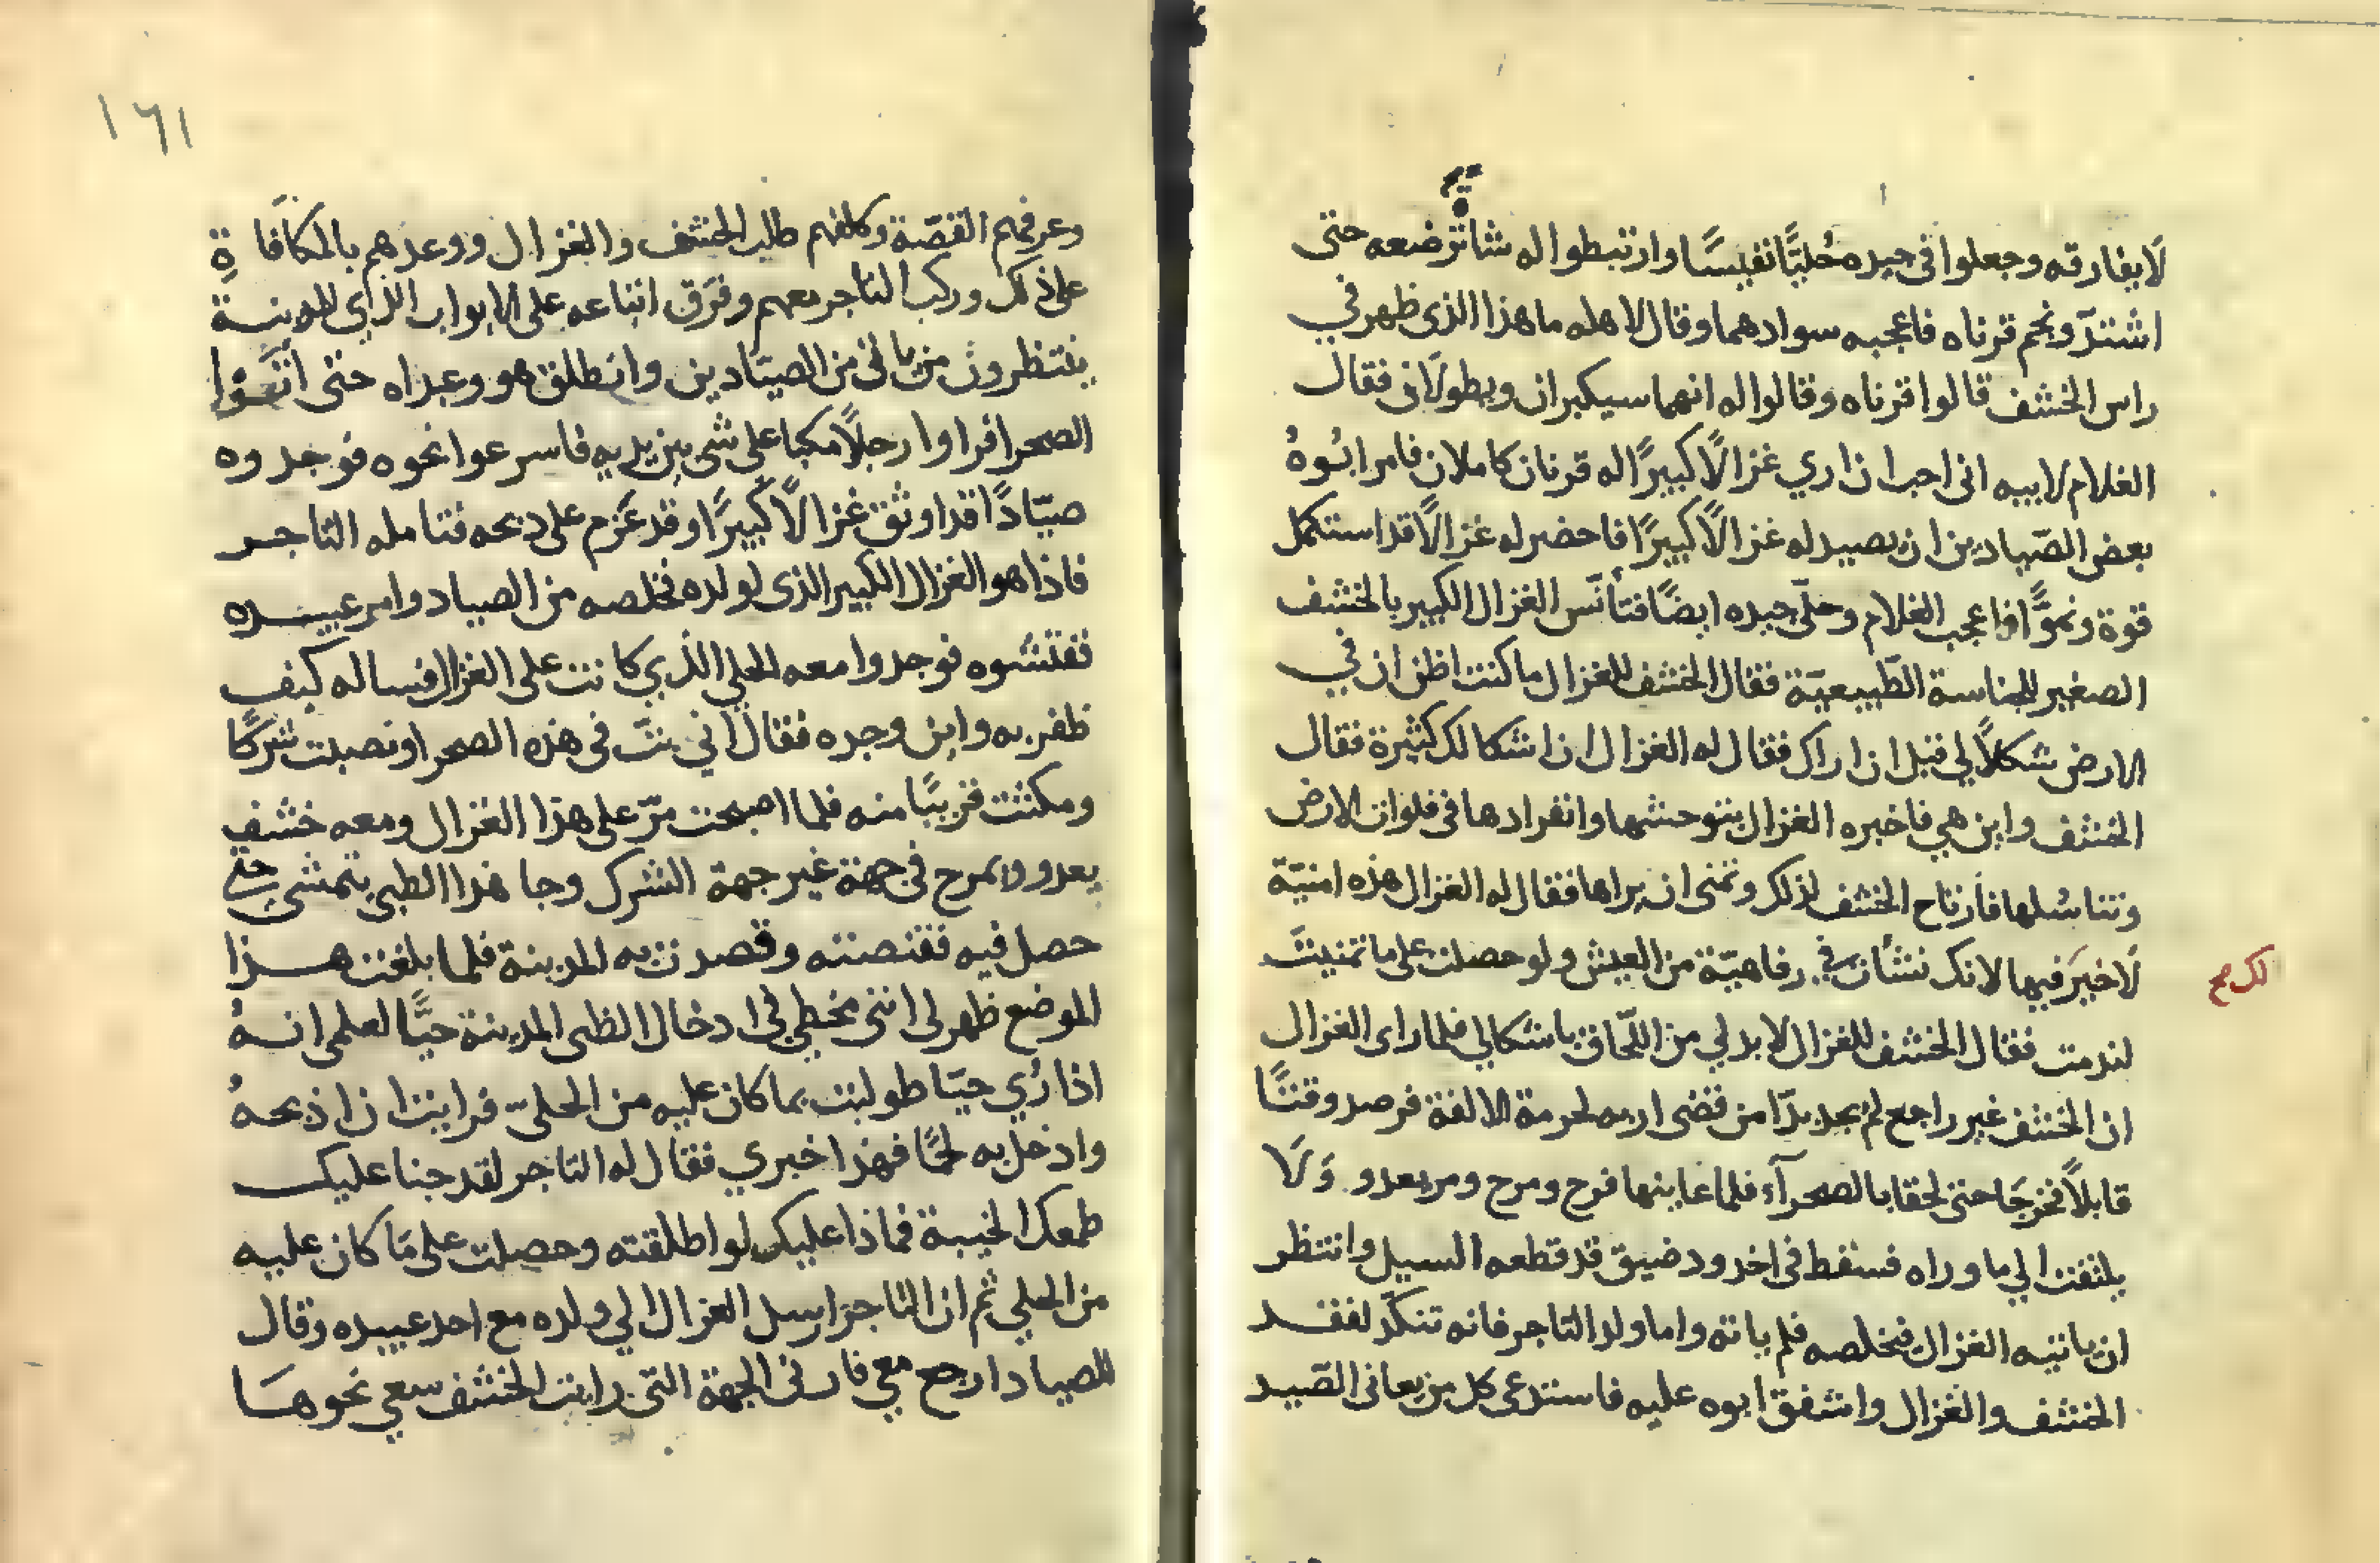 لا يفارقه وجعلوا في جيده حُليًّا نفيسًا وارتبطوا له شاة ترضعه حتى
اشتدّ ونجم قرناه فاعجبه سوادهما وقال لاهله ما هذا الذي ظهر في
راس الخشف قالوا قرناه وقالوا له انهما سيكبران ويطولان فقال
الغلام لابيه اني احب ان اري غزالًا كبيرًا له قرنان كاملان فامر ابُوهُ
بعض الصّيادين ان يصيد له غزالًا كبيرًا فاحضر له غزالًا قد استكمل
قوة ونموًّا فاعجب الغلام وحلّي جيده ايضًا فتأنّس الغزال الكبير بالخشف
الصغير للمجانسة الطّبيعيّة فقال الخشف للغزال ما كنت اظن ان في
الارض شكلًا لي قبل ان اراك فقال له الغزال ان اشكالك كثيرة فقال
الخشف واين هي فاخبره الغزال بتوحشها وانفرادها في فلوات الارض
وتناسُلها فارتاح الخشف لذلك وتمنى ان يراها فقال له الغزال هذه امنيّة
لا خيرَ فيها لانك نشأت في رفاهيّة من العيش ولو حصلت على ما تمنيتَ
لك صح
لندمت فقال الخشف للغزال لا بد لي من اللّحاق باشكالي فلما راى الغزال
ان الخشف غير راجع لم يجد بدّا من قضى اربه لحرمة الالفة فرصد وقتًا
قابلًا فخرجَا حتى لحقا بالصحرآء فلما عاينها فرح ومرح ومر يعدو وَلَا
يلتفت الي ما وراه فسقط في اخدود ضيق قد قطعه السيل وانتظر
ان ياتيه الغزال فيخلصه فلم ياته واما ولد التاجر فانه تنكّد لفقد
الخشف والغزال واشفق ابوه عليه فاستدعى كل من يعاني الصّيد
١٦١
وعرفهم القصّة وكلفهم طلب الخشف والغزال ووعدهم بالمكافاةِ
على ذلك وركب التاجر معهم وفرّق اتباعه على الابواب الذي للمدينة
ينتظرون من ياتي من الصيّادين وانطلق هو وعبداه حتى اتَوْا
الصحرا فراوا رجلًا مكبا على شي بين يديه فاسرعوا نحوه فوجدوه
صيّادًا قد اوثق غزالًا كبيرًا وقد عزم على ذبحه فتامله التاجر
فاذا هو الغزال الكبير الذي لولده فخلصه من الصياد وامر عبيده
ففتشوه فوجدوا معه الحلي الذي كانت على الغزال فساله كيف
ظفر به واين وجده فقال اني بتّ في هذه الصحرا ونصبت شركًا
ومكثت قريبًا منه فلما اصبحت مرّ على هذا الغزال ومعه خشف
يعدو ويمرح في جهة غير جهة الشرك وجا هذا الظبي يتمشى حتى
حصل فيه فقنصته وقصدت به المدينة فلما بلغت هذا
الموضع ظهر لي انني مخطي في ادخال الظبي المدينة حيًّا لعلمي انهُ
اذا رُيي حيّا طولبت بما كان عليه من الحليّ فرايت ان اذبحهُ
وادخل به لحمًا فهذا خبري فقال له التاجر لقد جنا عليك
طمعك الخيبة فماذا عليك لو اطلقته وحصلت على مَا كان عليه
من الحلي ثم ان التاجر ارسل الغزال الي ولده مع احد عبيده وقال
للصياد ارجع معي فارني الجهة التي رايت الخشف سعي نحوهَا